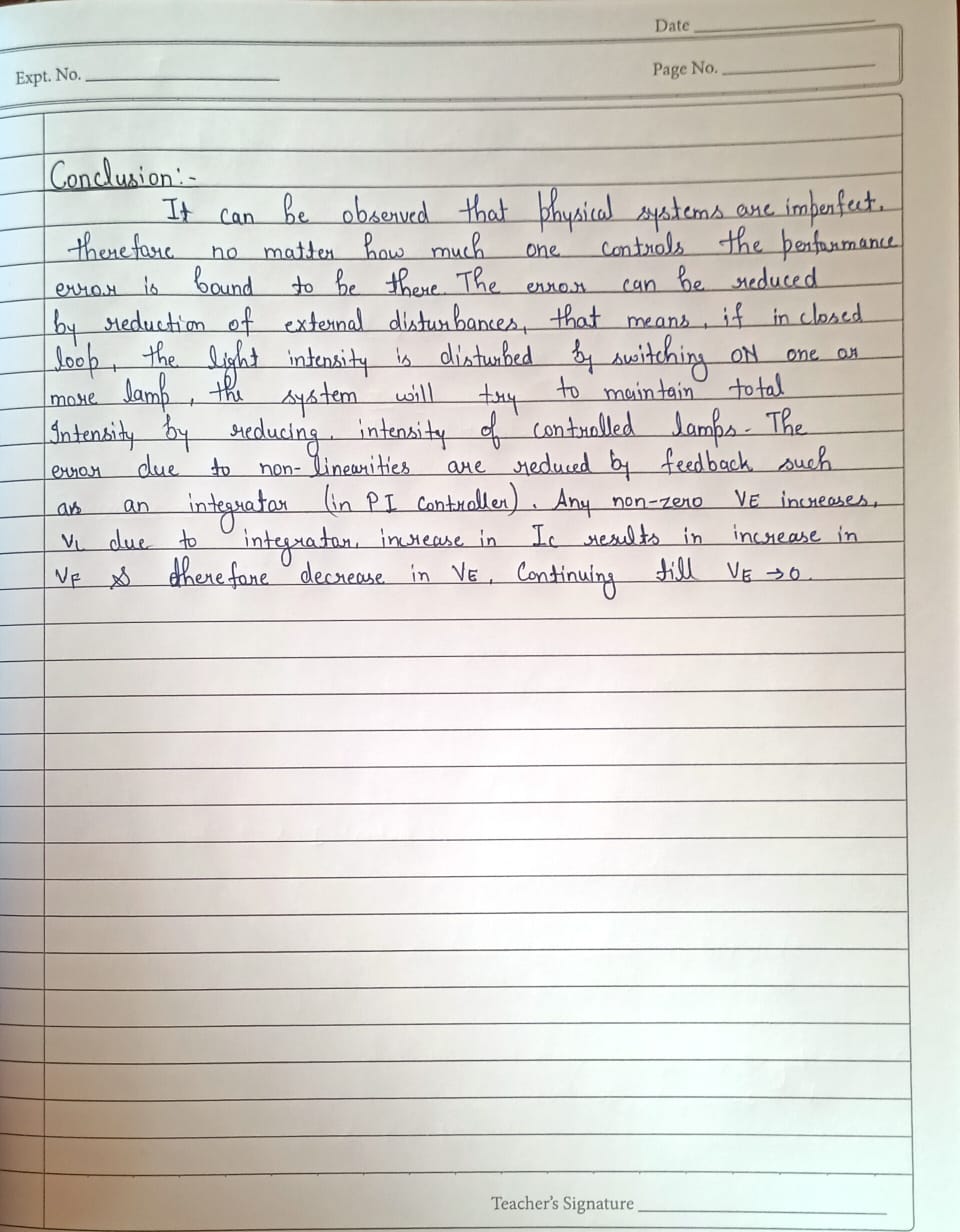 Date
Expt. No.
Page No.
Conclusion:-
It can be observed that physical systems are imperfect.
therefore no matter how much one controls the performance
error is bound to be there. The error can be reduced
by reduction of external disturbances, that means, if in closed
loop, the light intensity is disturbed by switching ON one or
more lamp, the system will try to maintain total
Intensity by reducing intensity of controlled lamps. The
error due to non-linearities are reduced by feedback such
as an integrator (in PI Controller). Any non-zero VE increases,
VL due to integrator, increase in Ic results in increase in
VF & therefore decrease in VE, Continuing till VE →0.
Teacher's Signature